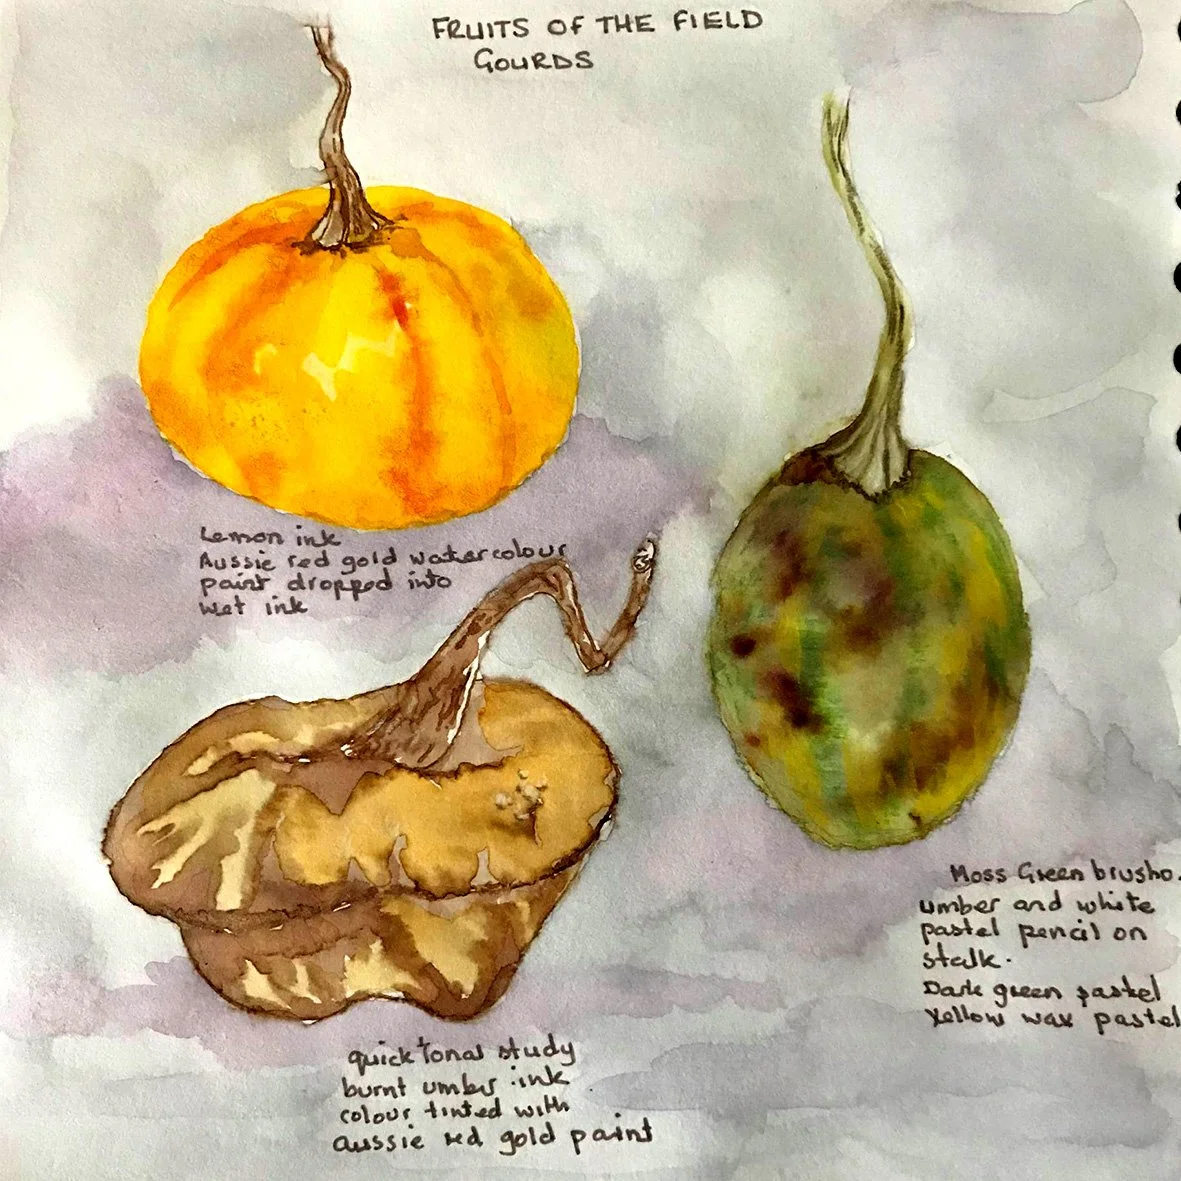 FRUITS OF THE FIELD
GOURDS
Lemon ink
Aussie red gold watercolour
paint dropped into
wet ink
Moss Green brusho.
umber and white
pastel pencil on
stalk.
Dark green pastel
Yellow wax pastel
quick tonal study
burnt umber ink
colour tinted with
aussie red gold paint